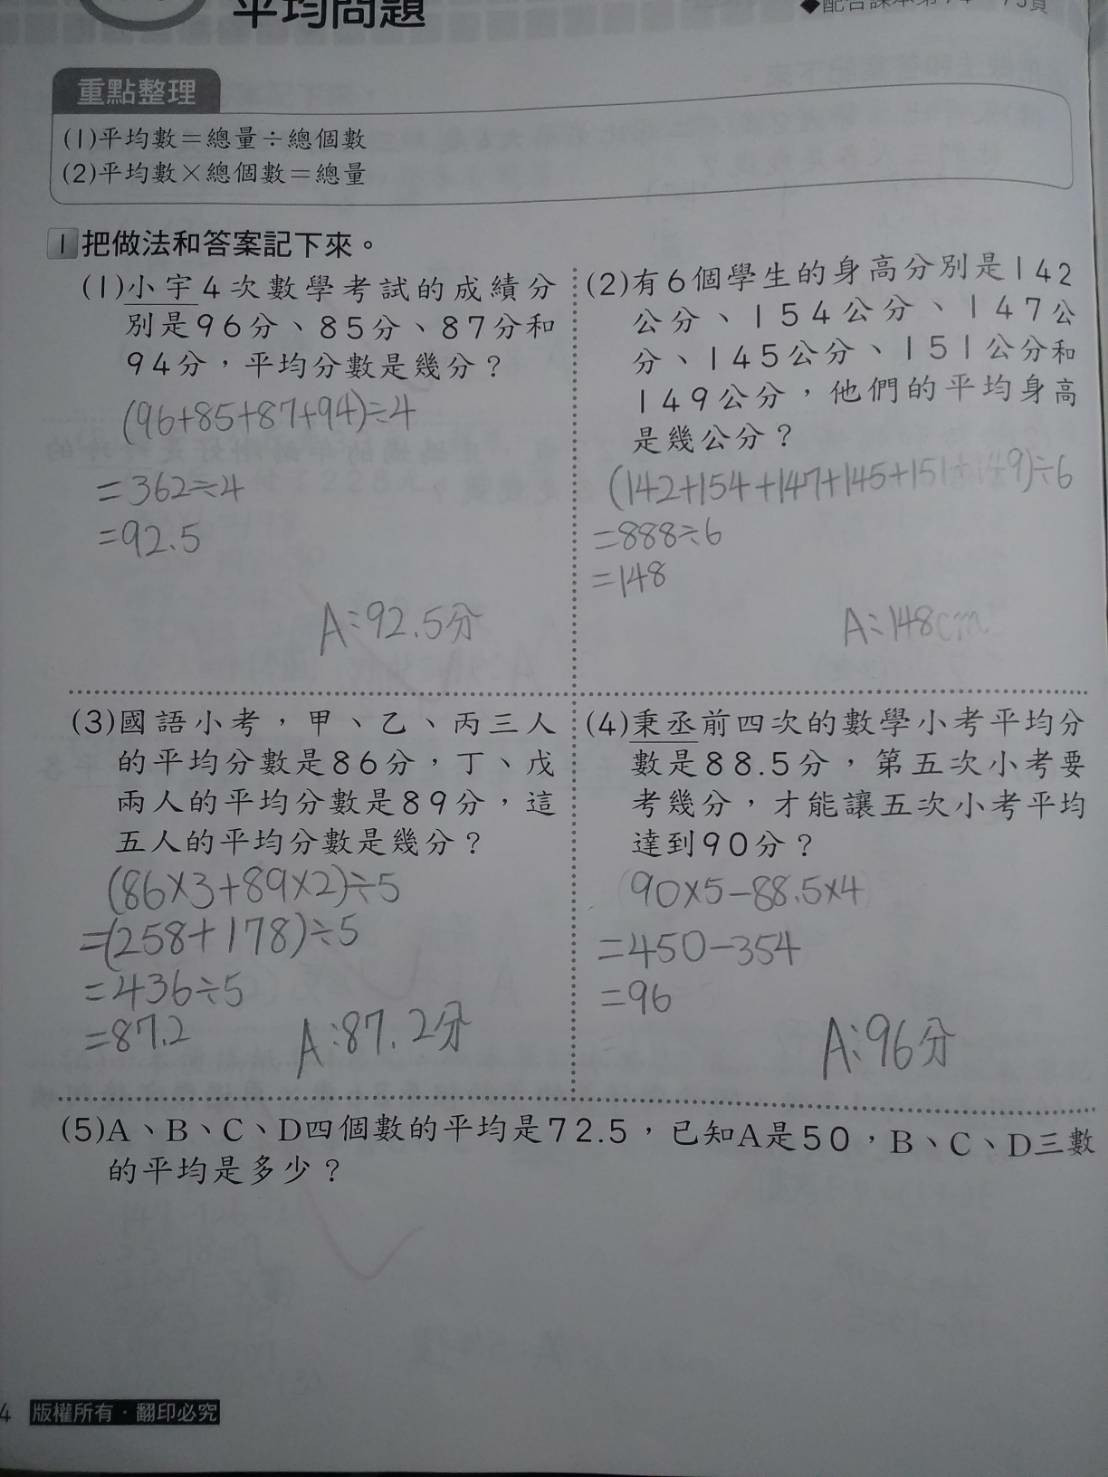 平均問題
重點整理
(1)平均數＝總量÷總個數
(2)平均數×總個數＝總量
1 把做法和答案記下來。
(1)小宇4次數學考試的成績分
別是96分、85分、87分和
94分，平均分數是幾分？
(96+85+87+94)÷4
=362÷4
=92.5
A:92.5分
(2)有6個學生的身高分別是142
公分、154公分、147公
分、145公分、151公分和
149公分，他們的平均身高
是幾公分？
(142+154+147+145+151+149)÷6
=888÷6
=148
A:148cm
(3)國語小考，甲、乙、丙三人
的平均分數是86分，丁、戊
兩人的平均分數是89分，這
五人的平均分數是幾分？
(86×3+89×2)÷5
=(258+178)÷5
=436÷5
=87.2
A:87.2分
(4)秉丞前四次的數學小考平均分
數是88.5分，第五次小考要
考幾分，才能讓五次小考平均
達到90分？
90×5-88.5×4
=450-354
=96
A:96分
(5)A、B、C、D四個數的平均是72.5，已知A是50，B、C、D三數
的平均是多少？
4 版權所有·翻印必究